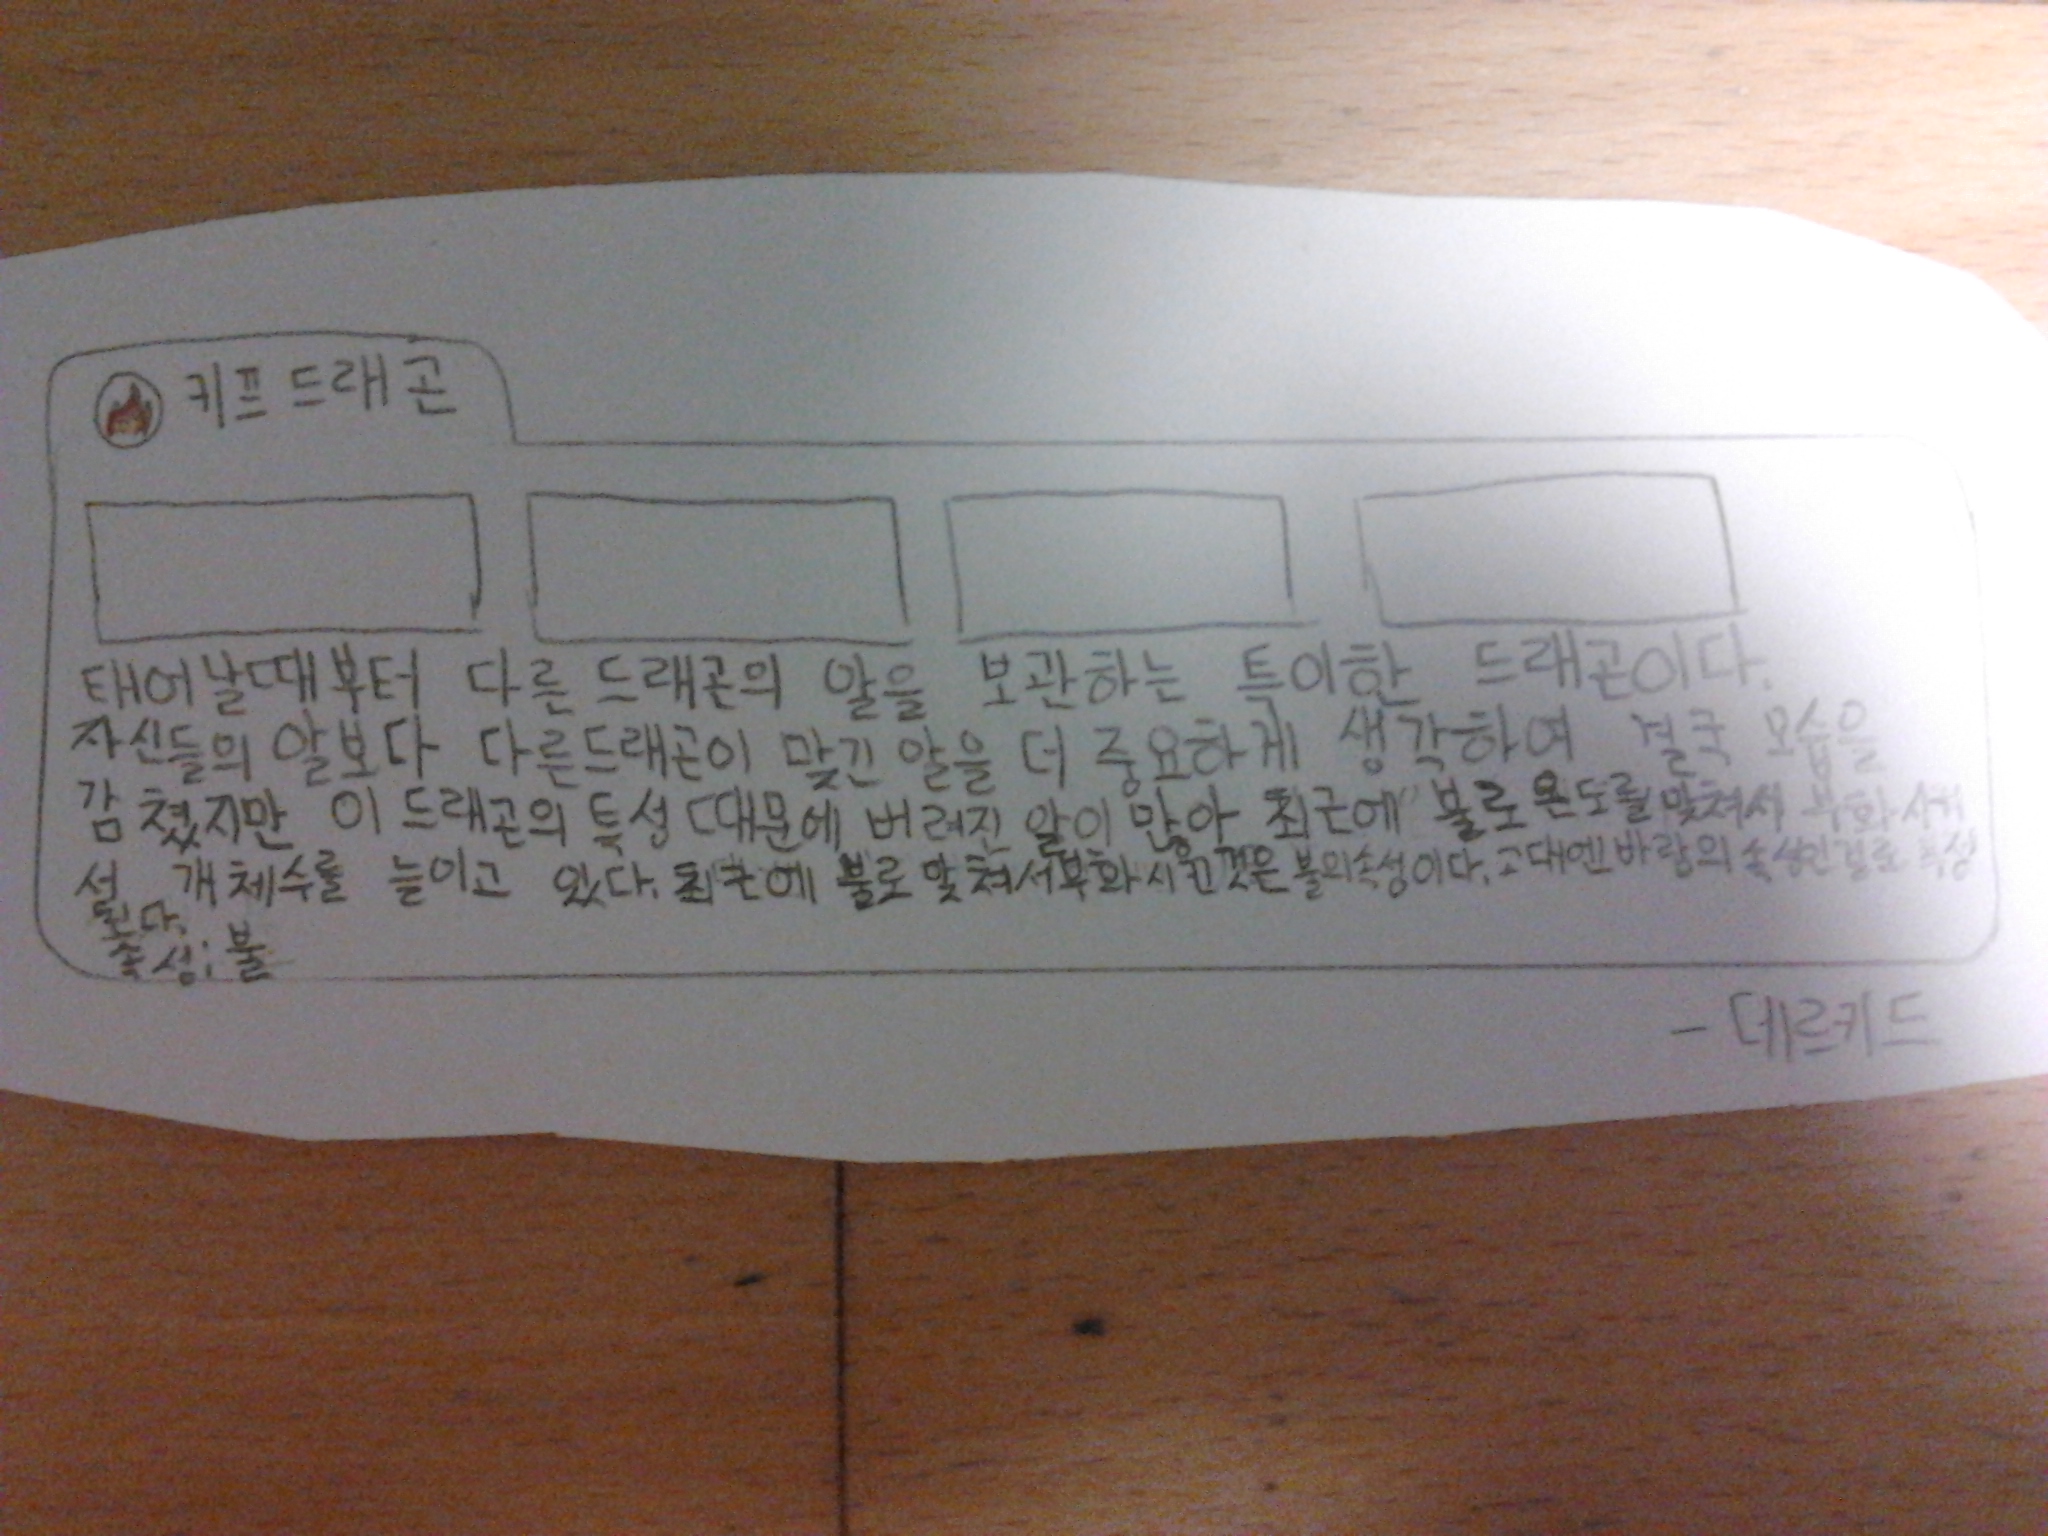 키프 드래곤
태어날때부터 다른 드래곤의 알을 보관하는 특이한 드래곤이다.
자신들의 알보다 다른드래곤이 맞긴 알을 더 중요하게 생각하여 결국 모습을
감췄지만 이 드래곤의 특성 때문에 버려진 알이 많아 최근에 불로 온도를 맞쳐서 부화 시켜
서 개체수를 늘이고 있다. 최근에 불로 맞쳐서부화시킨것은 불의속성이다. 고대엔바람의 속성인걸로 추정
된다.
속성: 불
- 데르키드